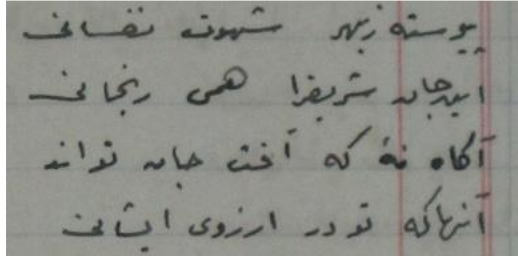 پیوسته ز بهر شهوت نفسانی
این جان شریف را همی رنجانی
آگاه نهٔ که آفت جان تواند
آنها که تو در ارزوی ایشانی